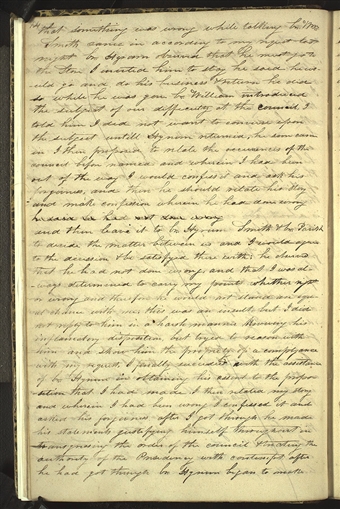 that something was wrong while talking br Wm
Smith came in according to my request to
night br Hyrum observed that he must go to
the Store I invited him to stay he said he wo-
uld go and do his business & return he did
so while he was gone br William introduced
the subject of our difficulty at the council I
told him I did not want to converse upon
the subject untill Hyrum returned, he soon came
in I then proposed to relate the occurrences of the
council before named and wherein I had been
out of the way I would confess it and ask his
forgivness, and then he should relate his story
and make confession wherein he had done wrong
he said he had not done wrong
and then leave it to br Hyrum Smith & br Parrish
to decide the matter between us and I would agree
to the decission & be satisfied there with; he observed
that he had not done wrong, and that I was al-
ways determined to carry my points whether right
or wrong and therefore he would not stand an equ-
al chance with me; this was an insult, but I did
not reply to him in a harsh manner knowing his
inflamatory disposition, but tryed to reason with
him and show him the propriety of a complyance
with my request, I finally succeeded with the assistance
of br Hyrum in obtaining his assent to the propo-
sition that I had made. I then related my story
and wherein I had been wrong I confessed it and
asked his forgivness after I got through he made
his statements justifying himself throughout in
transgressing the order of the council & treating the
authority of the Presidency with contempt; after
he had got through br Hyrum began to make